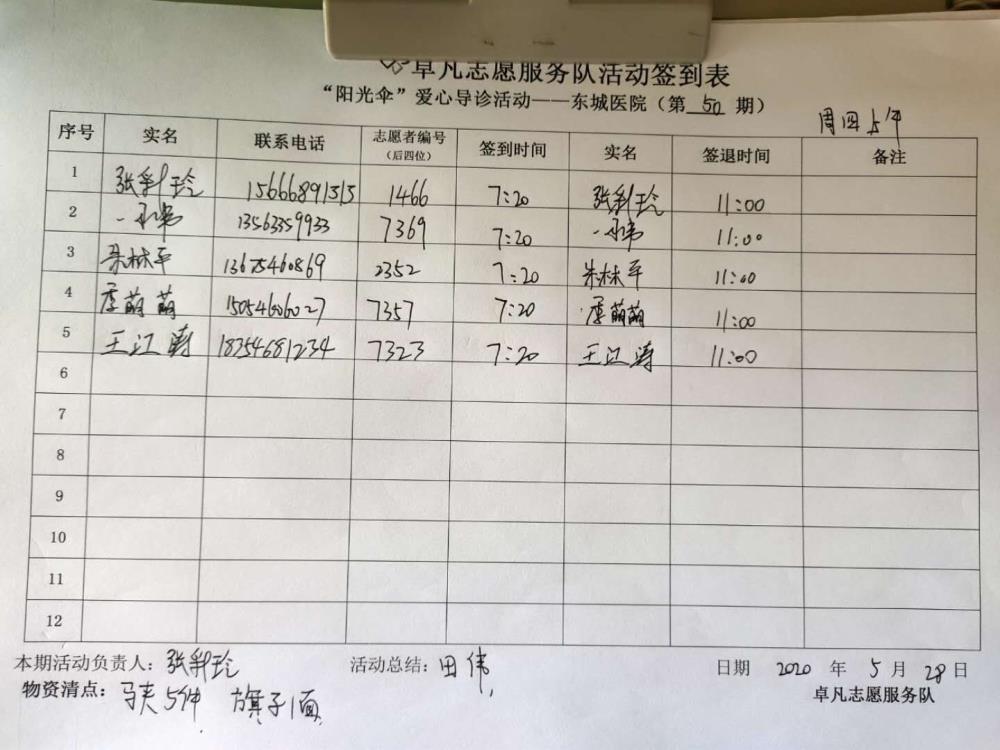 卓凡志愿服务队活动签到表
“阳光伞”爱心导诊活动——东城医院（第 50 期）
周四上午
序号 实名 联系电话 志愿者编号（后四位） 签到时间 实名 签退时间 备注
1 张彩玲 15666891515 1466 7:20 张彩玲 11:00
2 13563359933 7369 7:20 11:00
3 朱林平 13675460869 2352 7:20 朱林平 11:00
4 季萌萌 15054606027 7357 7:20 季萌萌 11:00
5 王江涛 18354681234 7323 7:20 王江涛 11:00
6
7
8
9
10
11
12
本期活动负责人：张彩玲 活动总结：田伟 日期 2020 年 5 月 28 日
物资清点：马夹5件 旗子1面 卓凡志愿服务队